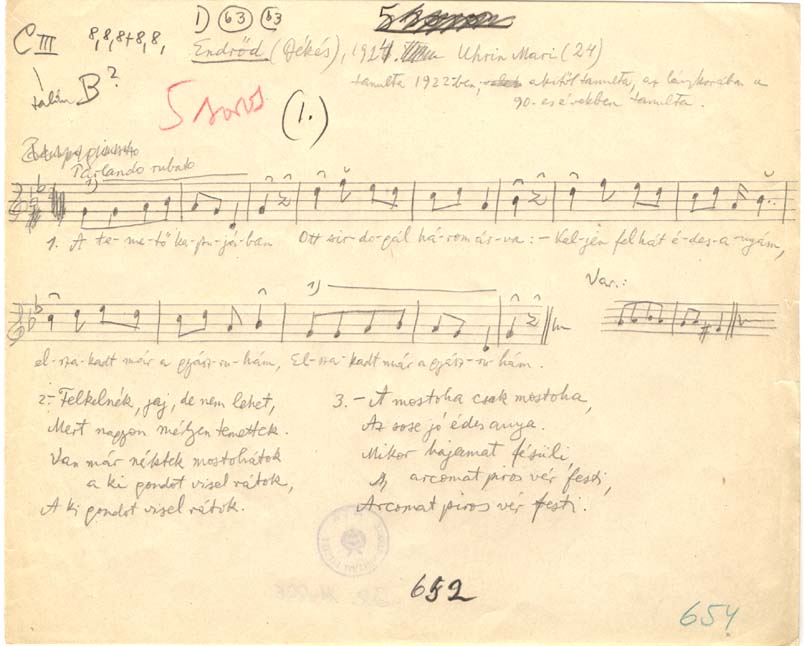 C III 8, 8, 8+8, 8,
1) 63 63
Endrőd (Békés), 1924. Uhrin Mari (24)
tanulta 1922-ben, akitől tanulta, az lánykorában a
90-es években tanulta.
talán B?
5 soros
(1.)
Parlando rubato
1)
1. A te-me-tő ka-pu-já-ban Ott sir-do-gál há-rom ár-va: - Kel-jen fel hát é-des-a-nyám,
Var.:
1)
el-sza-kadt már a gyász-ru-hám, El-sza-kadt már a gyász-ru-hám.
2.- Felkelnék, jaj, de nem lehet,
Mert nagyon mélyen temettek.
Van már néktek mostohátok
a ki gondot visel rátok,
A ki gondot visel rátok.
3. - A mostoha csak mostoha,
Az sose jó édes anya.
Mikor hajamat fésüli,
arcomat piros vér festi,
Arcomat piros vér festi.
652
654